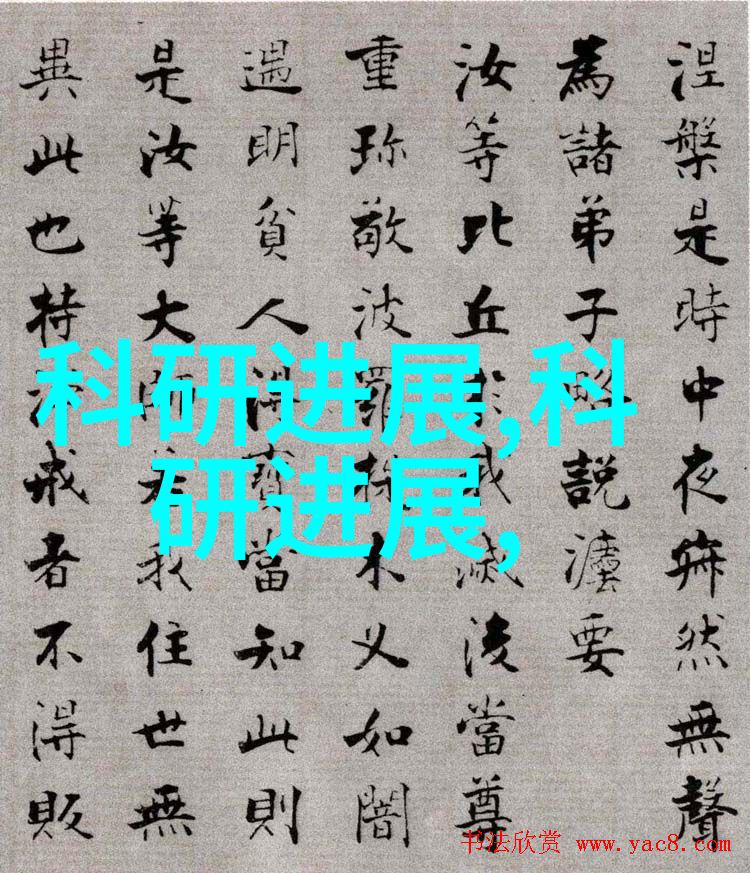 涅槃是時中夜寂然無聲
為諸弟子略說法要
汝等比丘於我滅後當尊
重珍敬波羅提木叉如闇
遇明貧人得寶當知此則
是汝等大師若我住世無
異此也持淨戒者不得販
科研进展,科
研进展,
书法欣赏 www.yac8.com